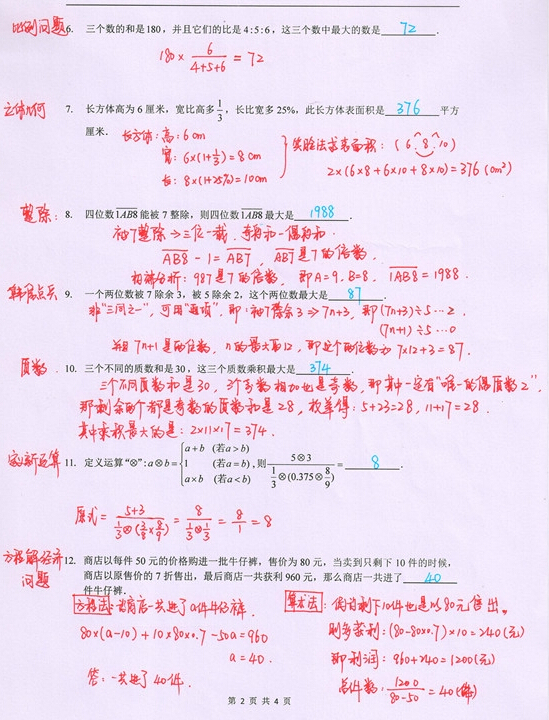 比例问题 6. 三个数的和是180,并且它们的比是4:5:6,这三个数中最大的数是 72 .
180 × 6/(4+5+6) = 72
立体几何 7. 长方体高为6厘米,宽比高多1/3,长比宽多25%,此长方体表面积是 376 平方
厘米. 长方体:高:6cm
宽:6×(1+1/3)=8cm
长:8×(1+25%)=10cm
求表面积:(6 8 10)
2×(6×8+6×10+8×10)=376(cm²)
整除: 8. 四位数1AB8能被7整除,则四位数1AB8最大是 1988 .
被7整除⇒三位一截,奇和-偶和.
AB8 - 1 = AB7, AB7是7的倍数.
987是7的倍数, 即A=9, B=8, 1AB8=1988.
韩信点兵 9. 一个两位数被7除余3,被5除余2,这个两位数最大是 87 .
非“三同之一”,可用“通项”,即:被7除余3⇒7n+3,即(7n+3)÷5…2,
(7n+1)÷5…0
7n+1是5的倍数,n的最大取12,即这个两位数为7×12+3=87.
质数 10. 三个不同的质数和是30,这三个质数乘积最大是 374 .
三个不同质数和是30,3个奇数相加也是奇数,那其中一定有“唯一的偶质数2”,
那剩余两个都是奇数的质数和是28,故差得:5+23=28,11+17=28.
其中乘积最大的是:2×11×17=374.
定义新运算 11. 定义运算“⊗”:a⊗b={a+b (若a>b) 1 (若a=b) a×b (若a<b),则 (5⊗3)/(1/3⊗(0.375⊗8/9)) = 8 .
原式= (5+3)/(1/3⊗(3/8×8/9)) = 8/(1/3⊗1/3) = 8/1 = 8
方程解经济问题 12. 商店以每件50元的价格购进一批牛仔裤,售价为80元,当卖到只剩下10件的时候,
商店以原售价的7折售出,最后商店一共获利960元,那么商店一共进了 40
件牛仔裤.
方程法:设商店一共进了a件牛仔裤.
80×(a-10)+10×80×0.7-50a=960
a=40.
答:一共进了40件.
算术法:假设剩下10件也是以80元售出.
则多获利:(80-80×0.7)×10=240(元)
即利润:960+240=1200(元)
总件数:1200/(80-50)=40(件)
第 2 页 共 4 页